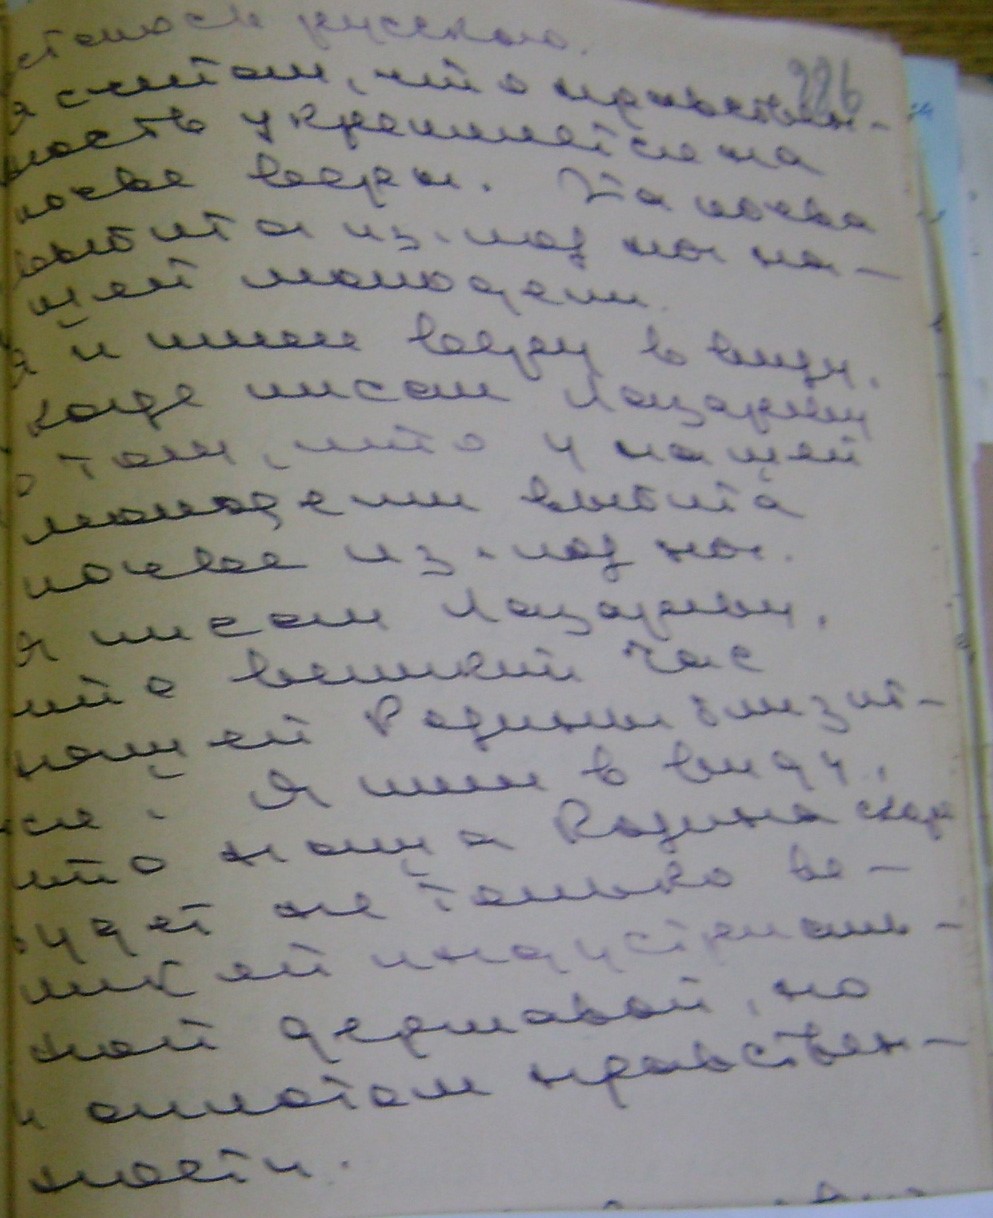 русского.
226
Я считаю, что нравствен-
ность укрепляется на
почве веры. Эта почва
выбита из-под ног на-
шей молодежи.
Я и имел веру в виду,
когда писал Лазареву
о том, что у нашей
молодежи выбита
почва из-под ног.
Я писал Лазареву,
что великий час
нашей Родины близит-
ся. Я имел в виду,
что наша Родина скоро
будет не только ве-
ликой индустриаль-
ной державой, но
и оплотом нравствен-
ности.